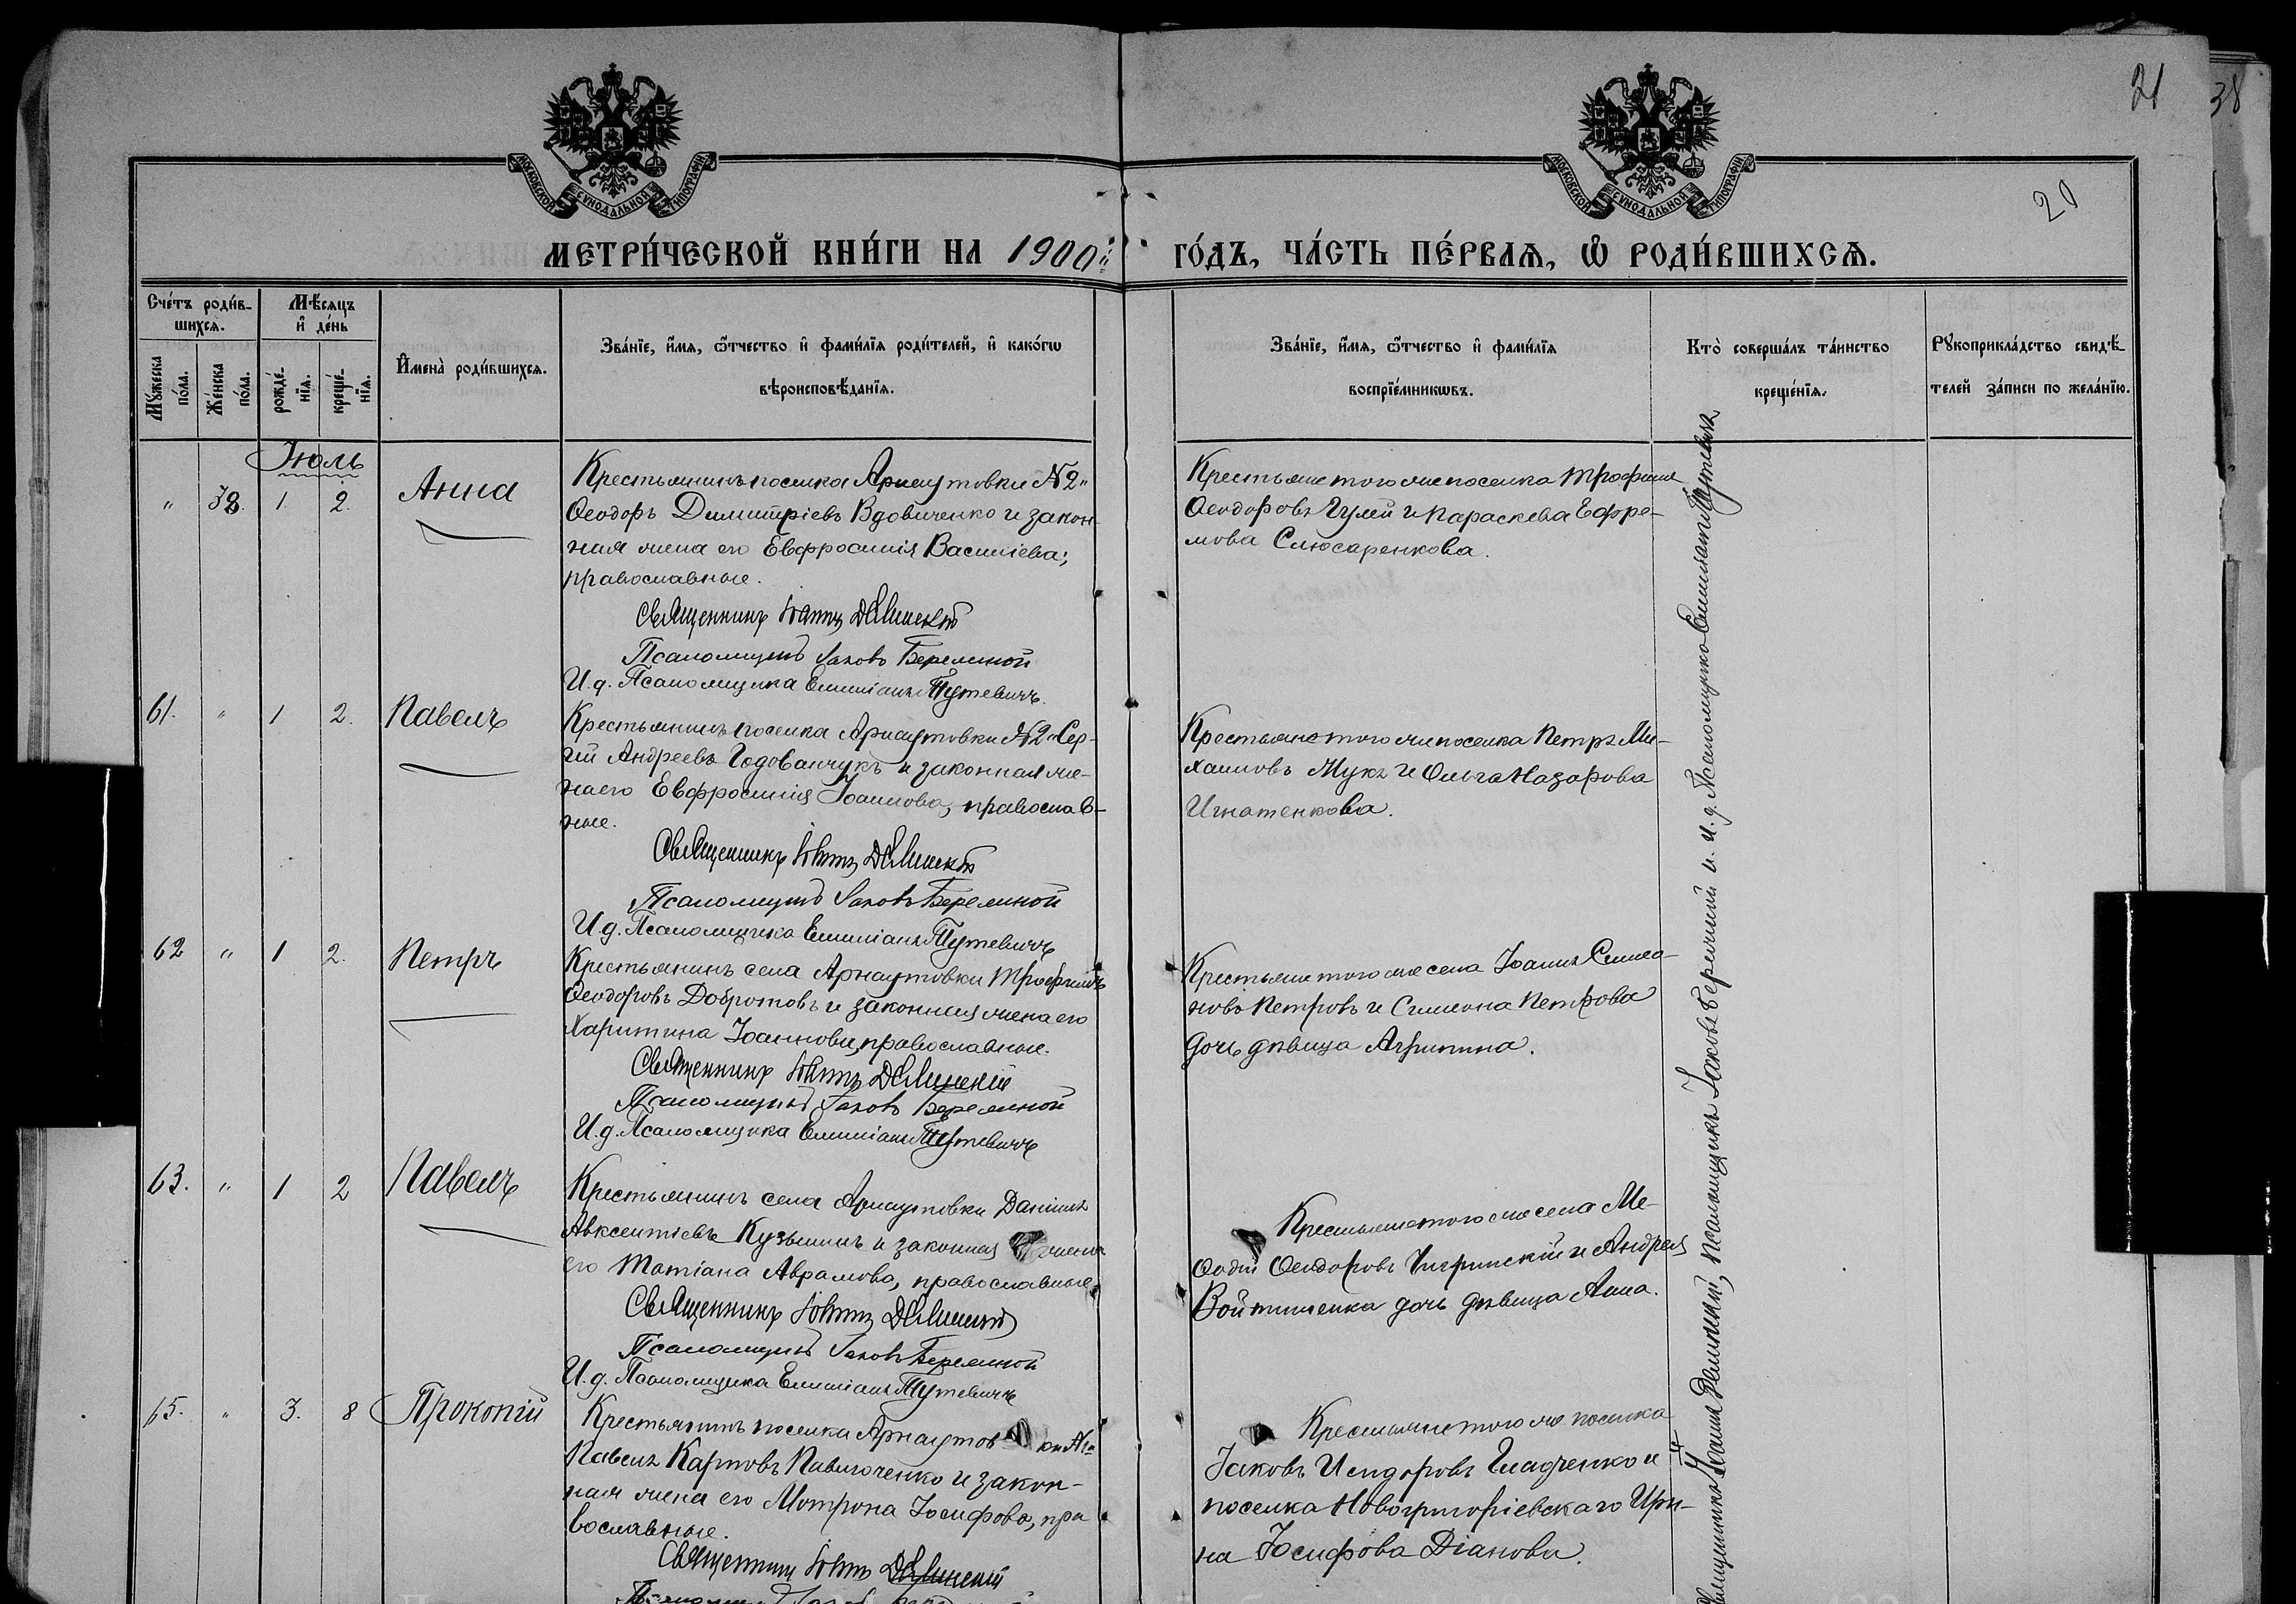 21
38
20
МОСКОВСКОЙ СѴНОДАЛЬНОЙ ТИПОГРАФІИ
МОСКОВСКОЙ СѴНОДАЛЬНОЙ ТИПОГРАФІИ
МЕТРИ́ЧЕСКОЙ КНИ́ГИ НА 1900й
ГО́ДЪ, ЧА́СТЬ ПЕ́РВАѦ, Ѡ҆ РОДИ́ВШИХСѦ.
Сче́тъ роди́в-
шихсѧ.
Мꙋ́жеска
по́ла.
Же́нска
по́ла.
Мѣ́сѧцъ
и҆ де́нь
рожде́-
нїѧ.
креще́-
нїѧ.
И҆мена̀ роди́вшихсѧ.
Зва́нїе, и҆́мѧ, ѻ҆́тчество и҆ фами́лїѧ роди́телей, и҆ како́гѡ
вѣроисповѣ́данїѧ.
Зва́нїе, и҆́мѧ, ѻ҆́тчество и҆ фами́лїѧ
воспрїе́мникѡвъ.
Кто̀ соверша́лъ та́инство
креще́нїѧ.
Рꙋкоприкла́дство свидѣ́-
телей за́писи по жела́нїю.
Іюль
" 38. 1. 2. Анна
Крестьянинъ поселка Арнаутовки №2й
Ѳеодоръ Димитріевъ Вдовиченко и закон-
ная жена его Евфросинія Василіева;
православные.
Священникъ Іоаннъ Делинскій
Псаломщикъ Іаковъ Бережной
И. д. Псаломщика Емиліанъ Тутевичъ
Крестьяне того же поселка Трофимъ
Ѳеодоровъ Гулей и Параскева Ефре-
мова Слюсаренкова.
61. " 1 2. Павелъ
Крестьянинъ поселка Арнаутовки №2й Сер-
гій Андреевъ Годованчукъ и законная же-
на его Евфросинія Іоаннова, православ-
ные.
Священникъ Іоаннъ Делинскій
Псаломщикъ Іаковъ Бережной
И. д. Псаломщика Емиліанъ Тутевичъ
Крестьяне того же поселка Петръ Ми-
хаиловъ Жукъ и Ольга Назарова
Игнатенкова.
62 " 1 2. Петръ
Крестьянинъ села Арнаутовки Трофимъ
Ѳеодоровъ Добротовъ и законная жена его
Харитина Іоаннова, православные.
Священникъ Іоаннъ Делинскій
Псаломщикъ Іаковъ Бережной
И. д. Псаломщика Емиліанъ Тутевичъ
Крестьяне того же села Іоаннъ Симео-
новъ Петровъ и Симеона Петрова
дочь девица Агрипина.
63. " 1 2 Павелъ
Крестьянинъ села Арнаутовки Даніилъ
Авксентіевъ Кузьминъ и законная жена
его Татіана Аврамова, православные.
Священникъ Іоаннъ Делинскій
Псаломщикъ Іаковъ Бережной
И. д. Псаломщика Емиліанъ Тутевичъ
Крестьяне того же села Ме-
ѳодій Ѳеодоровъ Чигринскій и Андрея
Войтишенка дочь девица Анна.
65. " 3. 8 Прокопій
Крестьянинъ поселка Арнаутовки
Павелъ Карповъ и закон-
ная жена его Матрона Іосифова, пра
вославные.
Священникъ Іоаннъ Делинскій
Крестьяне того же поселка
Іаковъ Исидоровъ Гладченко и
поселка Новогригоріевскаго Ири-
на Іосифова Діанова.
Священникъ Іоаннъ Делинскій, Псаломщикъ Іаковъ Бережной и и. д. Псаломщика Емиліанъ Тутевичъ